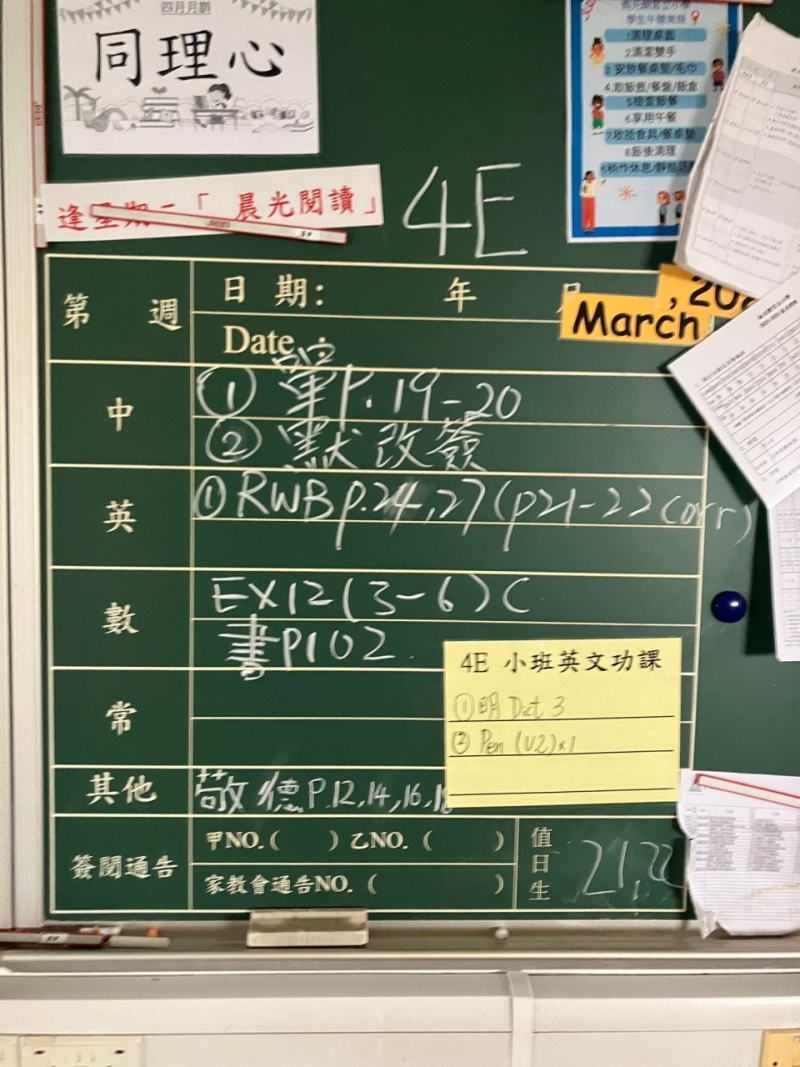 四月月訓
同理心
學生午膳常規
1.清理桌面
2.清潔雙手
3.安放餐桌墊/毛巾
4.取飯壺/餐盤/飯盒
5.檢查飯餐
6.享用午餐
7.收拾食具/餐桌墊
8.飯後清理
逢星期二「 晨光閱讀」
4E
第 週
日 期: 年 月
March
, 202
Date
中
① 單P.19-20
② 默改簽
英
① RWB P.24,27 (p21-22 corr)
數
EX12(3-6)C
書P102
4E 小班英文功課
① 明 Dict 3
② Pen (U2)x1
常
其他
敬德P.12,14,16,18
簽閱通告
甲NO.( ) 乙NO. ( )
家教會通告NO. ( )
值日生
21,22